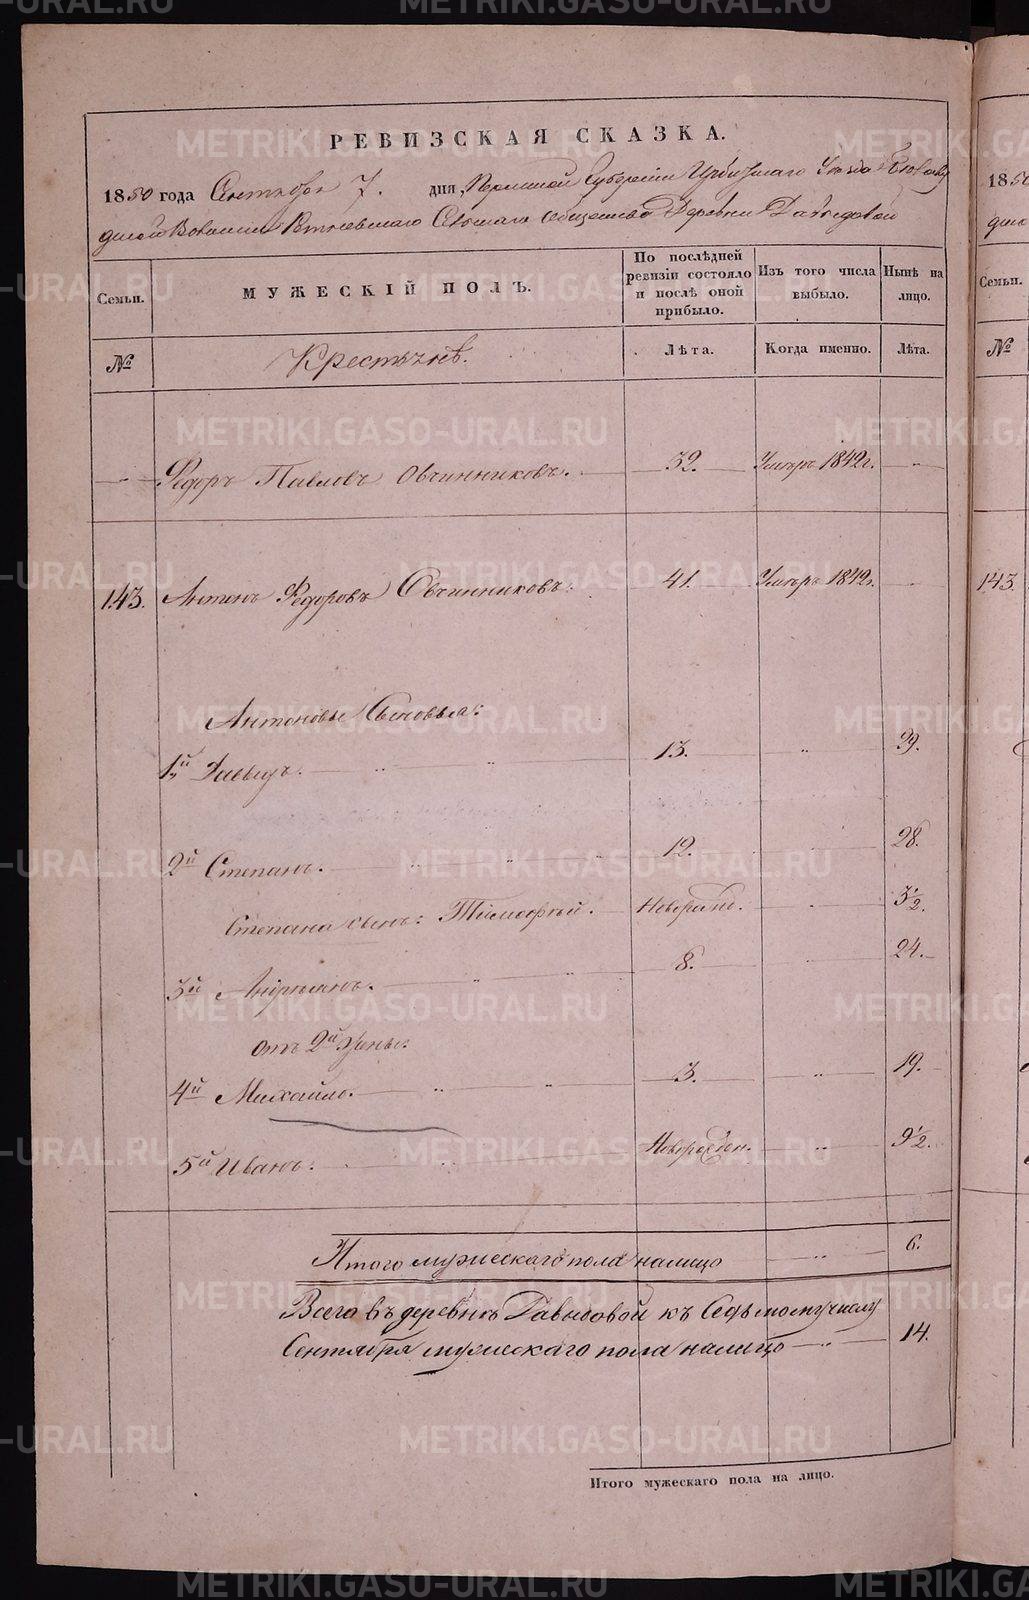 РЕВИЗСКАЯ СКАЗКА.
1850 года Сентября 7. дня, Пермской Губернии Ирбитскаго Уезда
Волости Сельскаго общества Деревни Давыдовой
Семьи.
МУЖЕСКІЙ ПОЛЪ.
По послѣдней ревизіи состояло и послѣ оной прибыло.
Изъ того числа выбыло.
Нынѣ на лицо.
№
Крестьянъ.
Лѣта.
Когда именно.
Лѣта.
Федоръ Павловъ Овчинниковъ. 32. Умеръ 1842 г.
143. Антонъ Федоровъ Овчинниковъ. 41. Умеръ 1849 г.
Антоновы Сыновья:
1й Давыдъ. 13. 29.
2й Степанъ. 12. 28.
Степана сынъ: Тимофей. Новорожд. 3½.
3й Андреянъ. 8. 24.
отъ 2й жены:
4й Михайло. 3. 19.
5й Иванъ. Новорожден. 9½.
Итого мужескаго пола налицо 6.
Всего въ деревнѣ Давыдовой къ Седьмому числу
Сентября мужескаго пола налицо 14.
Итого мужескаго пола на лицо.
1850
Семьи.
№
143.
METRIKI.GASO-URAL.RU